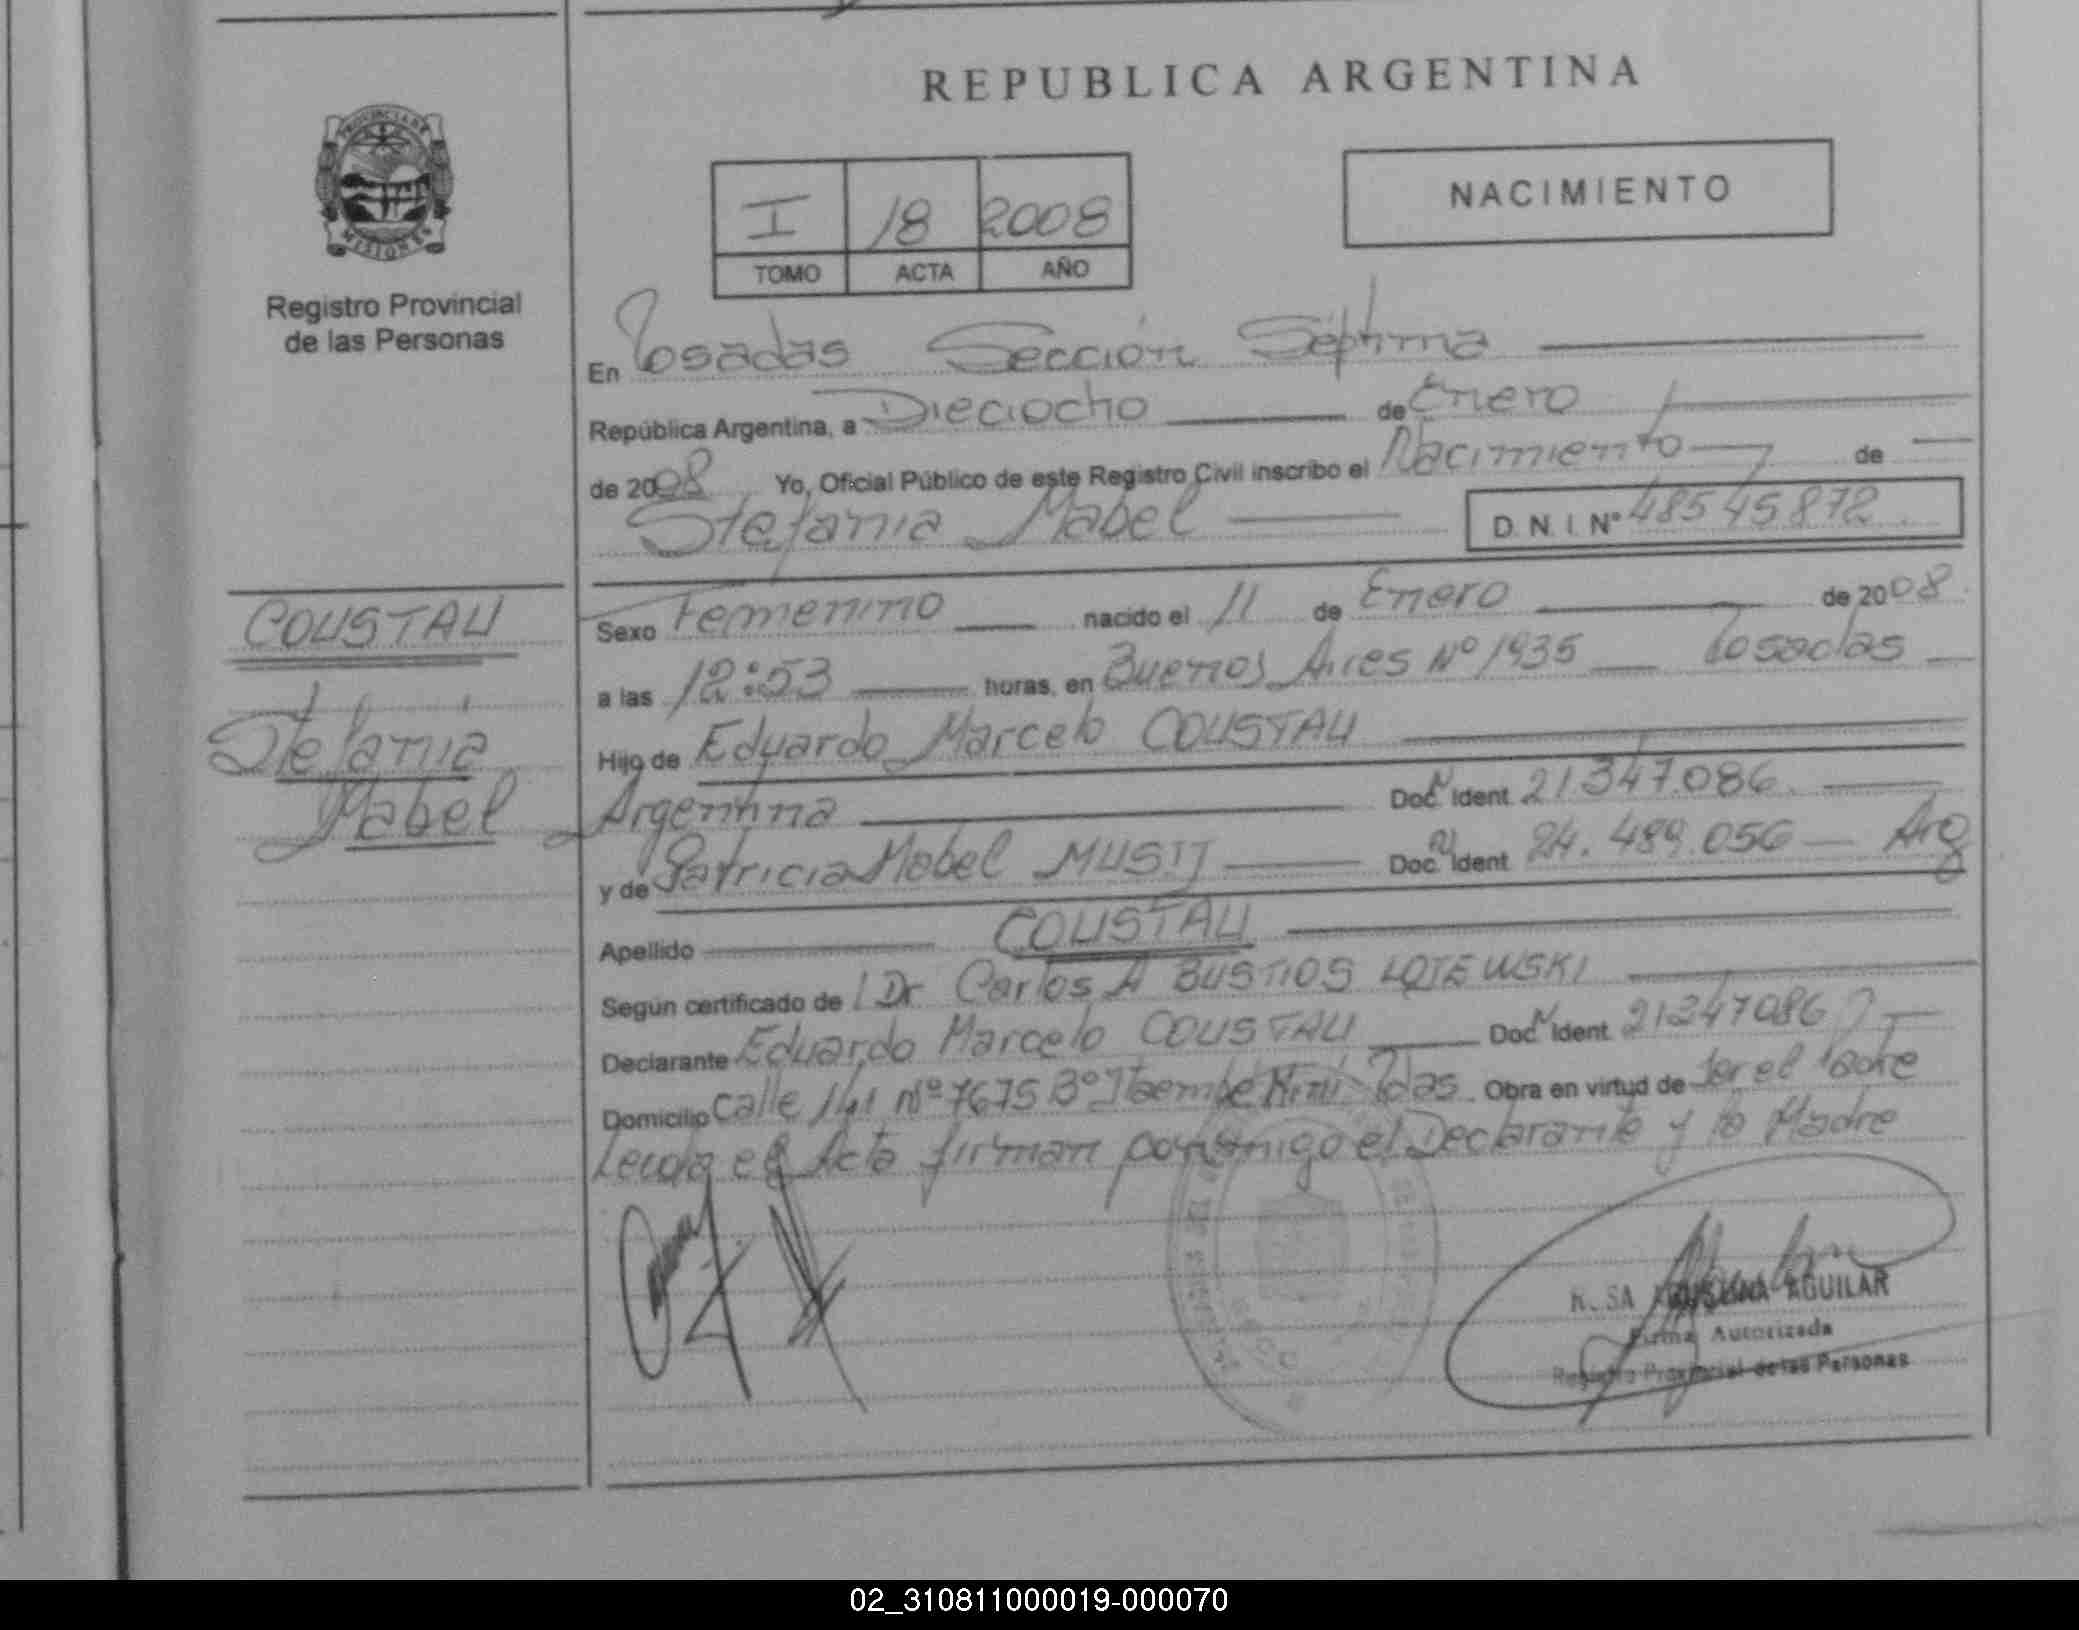 REPUBLICA ARGENTINA
PROVINCIA DE
MISIONES
Registro Provincial
de las Personas
I 18 2008
TOMO ACTA AÑO
NACIMIENTO
En Posadas Sección Séptima
República Argentina, a Dieciocho de Enero
de 2008 Yo, Oficial Público de este Registro Civil inscribo el Nacimiento de
Stefania Mabel D. N. I. Nº 48545872
COUSTAU
Stefania
Mabel
Sexo Femenino nacido el 11 de Enero de 2008
a las 12:53 horas, en Buenos Aires Nº 1935 Posadas
Hijo de Eduardo Marcelo COUSTAU
Argentina Doc. Ident. 21.347.086
y de Patricia Mabel MUSIJ Doc. Ident. 24.489.056 Arg
Apellido COUSTAU
Según certificado de Dr Carlos A BUSTIOS
Declarante Eduardo Marcelo COUSTAU Doc. Ident. 21347086
Domicilio Calle Nº 7675 Bº Itaembé Miní Pdas. Obra en virtud de ser el Padre
Leída el Acta firman conmigo el Declarante y la Madre
AGUILAR
Firma Autorizada
Registro Provincial de las Personas
02_310811000019-000070